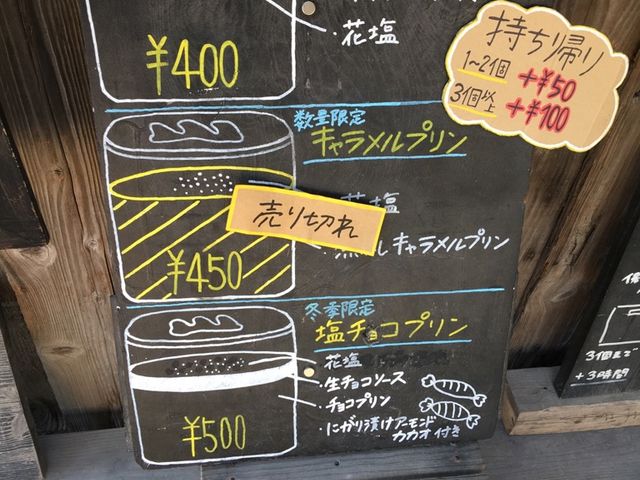 ・花塩
¥400
持ち帰り
1~2個 +¥50
3個〜 +¥100
数量限定
キャラメルプリン
花塩
売り切れ
蒸しキャラメルプリン
¥450
冬季限定
塩チョコプリン
花塩
・生チョコソース
・チョコプリン
・にがり漬けアーモンド
カカオ付き
¥500
3個まで
+3時間